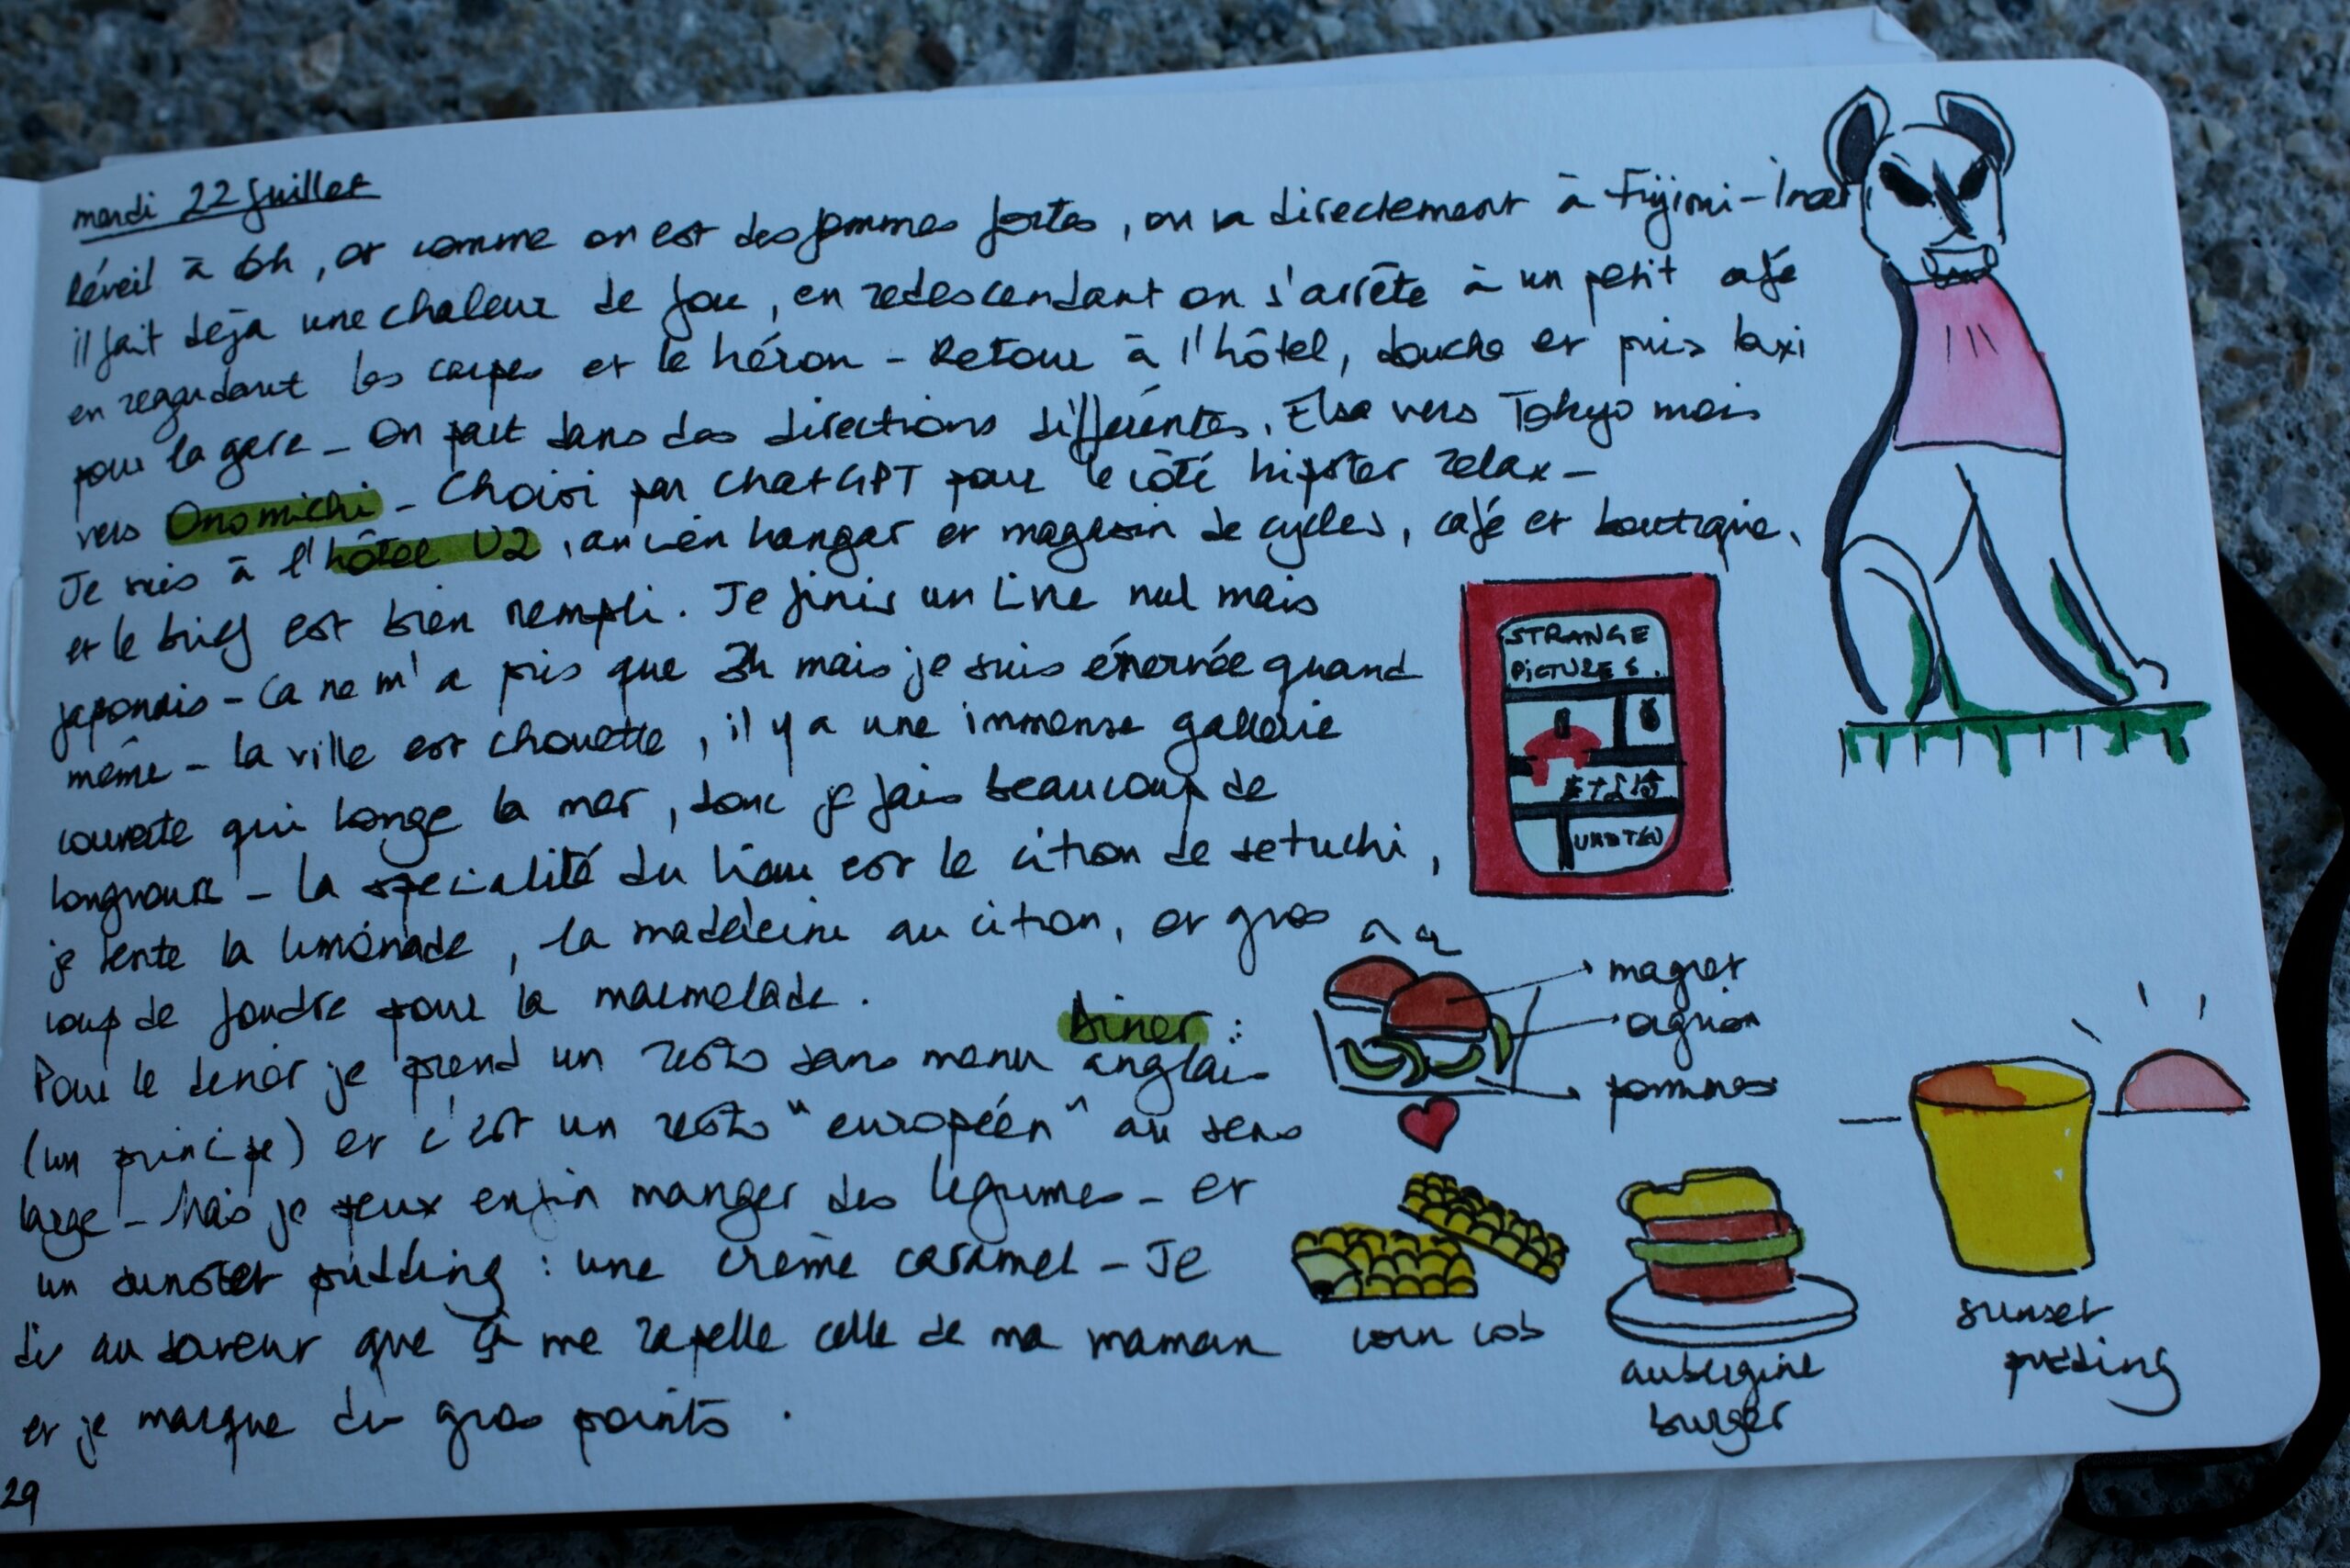 mardi 22 juillet
Réveil à 6h, et comme on est des femmes fortes, on va directement à Fujimi-Inari
il fait déjà une chaleur de fou, en redescendant on s'arrête à un petit café
en regardant les carpes et le héron - Retour à l'hôtel, douche et puis taxi
pour la gare - On part dans des directions différentes. Elsa vers Tokyo mois
vers Onomichi - Choisi par ChatGPT pour le côté hipster relax -
Je suis à l'hôtel U2, ancien hangar et magasin de cycles, café et boutique.
et le brief est bien rempli. Je finis un livre nul mais
japonais - Ca ne m'a pris que 3h mais je suis énervée quand
même - la ville est chouette, il y a une immense gallerie
couverte qui longe la mer, donc je fais beaucoup de
longueurs - La specialité du lieu est le citron de setuchi,
je tente la limonade, la madeleine au citron, et gros
coup de foudre pour la marmelade.
Diner :
Pour le diner je prend un resto sans menu anglais
(un principe) et c'est un resto "européen" au sens
large - Mais je peux enfin manger des légumes - et
un sunset pudding : une crème caramel - Je
dis au serveur que ça me rapelle celle de ma maman
et je marque de gros points.
29
STRANGE
PICTURES.
magret
oignon
pommes
corn cob
aubergine
burger
sunset
pudding